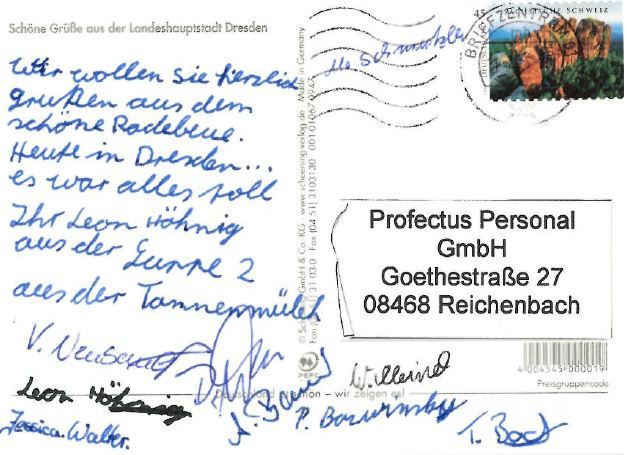 Schöne Grüße aus der Landeshauptstadt Dresden
Wir wollen Sie herzlich
grußen aus dem
schöne Radebeue.
Heute in Dresden...
es war alles toll
Ihr Leon Höhnig
aus der Guppe 2
aus der Tannenmüleh
V.
Leon Höhnig
Jessica Walter.
P.
T. Bock
© Schöning GmbH & Co. KG www.schoening-verlag.de Made in Germany
Fon (04 51) 31 03-0 Fax (04 51) 3103130 001 01067 0947
PEFC
Deutschland - wir zeigen es!
45
SCHWEIZ
BRIEFZENTRUM
Profectus Personal
GmbH
Goethestraße 27
08468 Reichenbach
4 004545 000019
Preisgruppencode